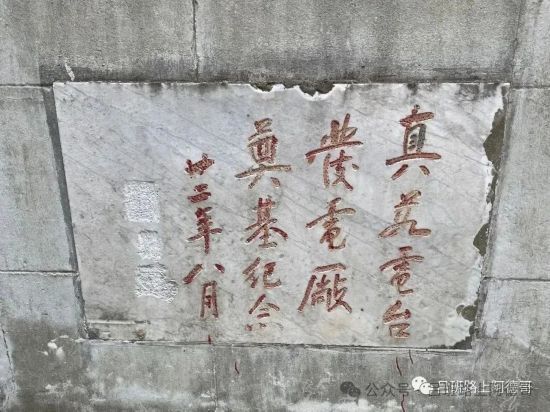 真茹電台
發電厰
奠基紀念
廿二年八月
公众号
吕班路上阿德哥